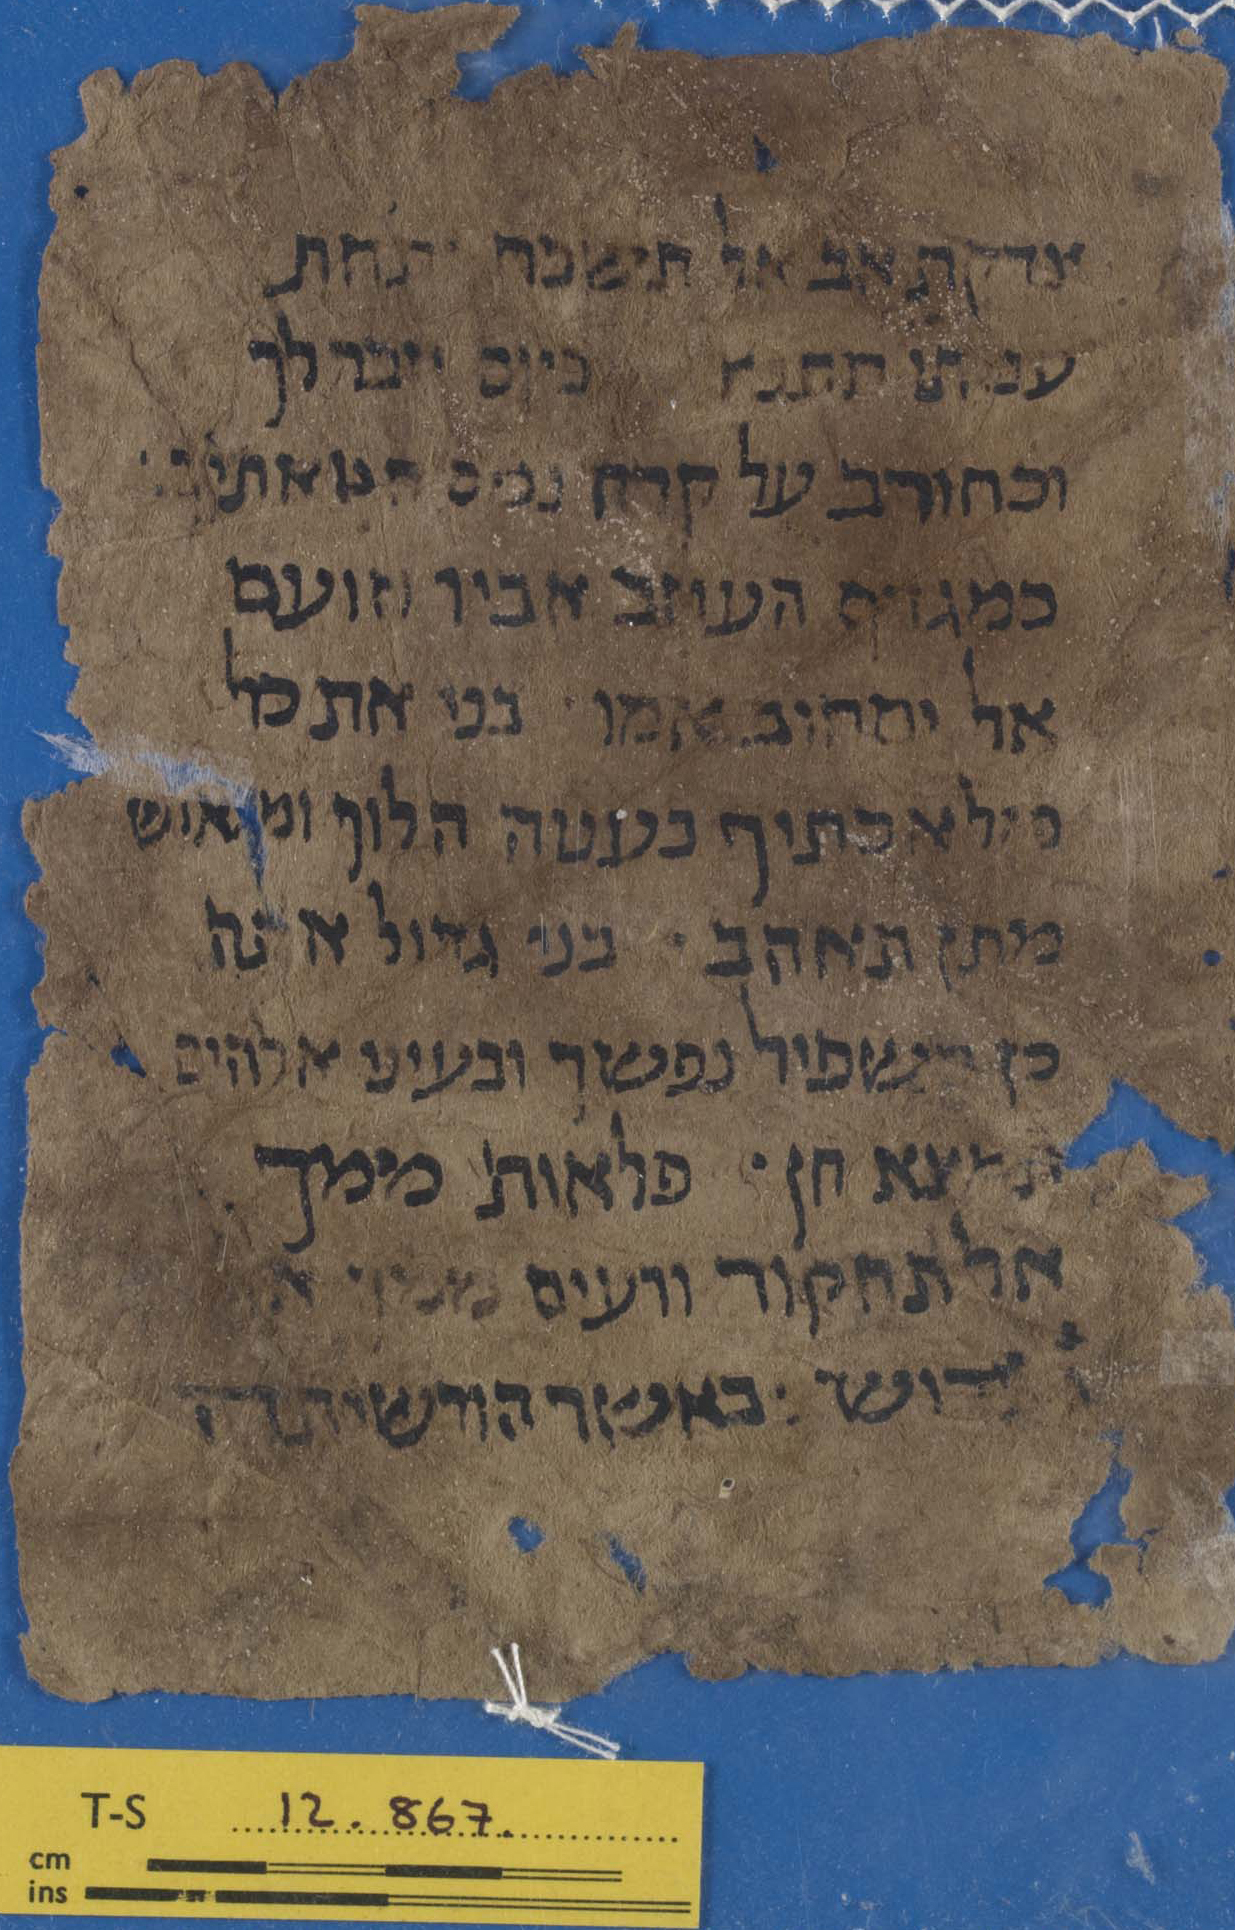 צדקת אב אל תשכח ותחת
ענותו תתנצב ביום יזכר לך
וכחורב על קרח נמס חטאתיך
כמגדף העוזב אביו וזועם
אל יסחוב אמו בני את כל
מלאכתיך בענוה הלוך ומאיש
מתן תאהב · בני גדול אתה
כן תשפיל נפשך ובעיני אלהים
תמצא חן · פלאות מימך
אל תחקור ורעים ממך א
תדרוש : באשר הורשיתה
T-S 12.867.
cm
ins